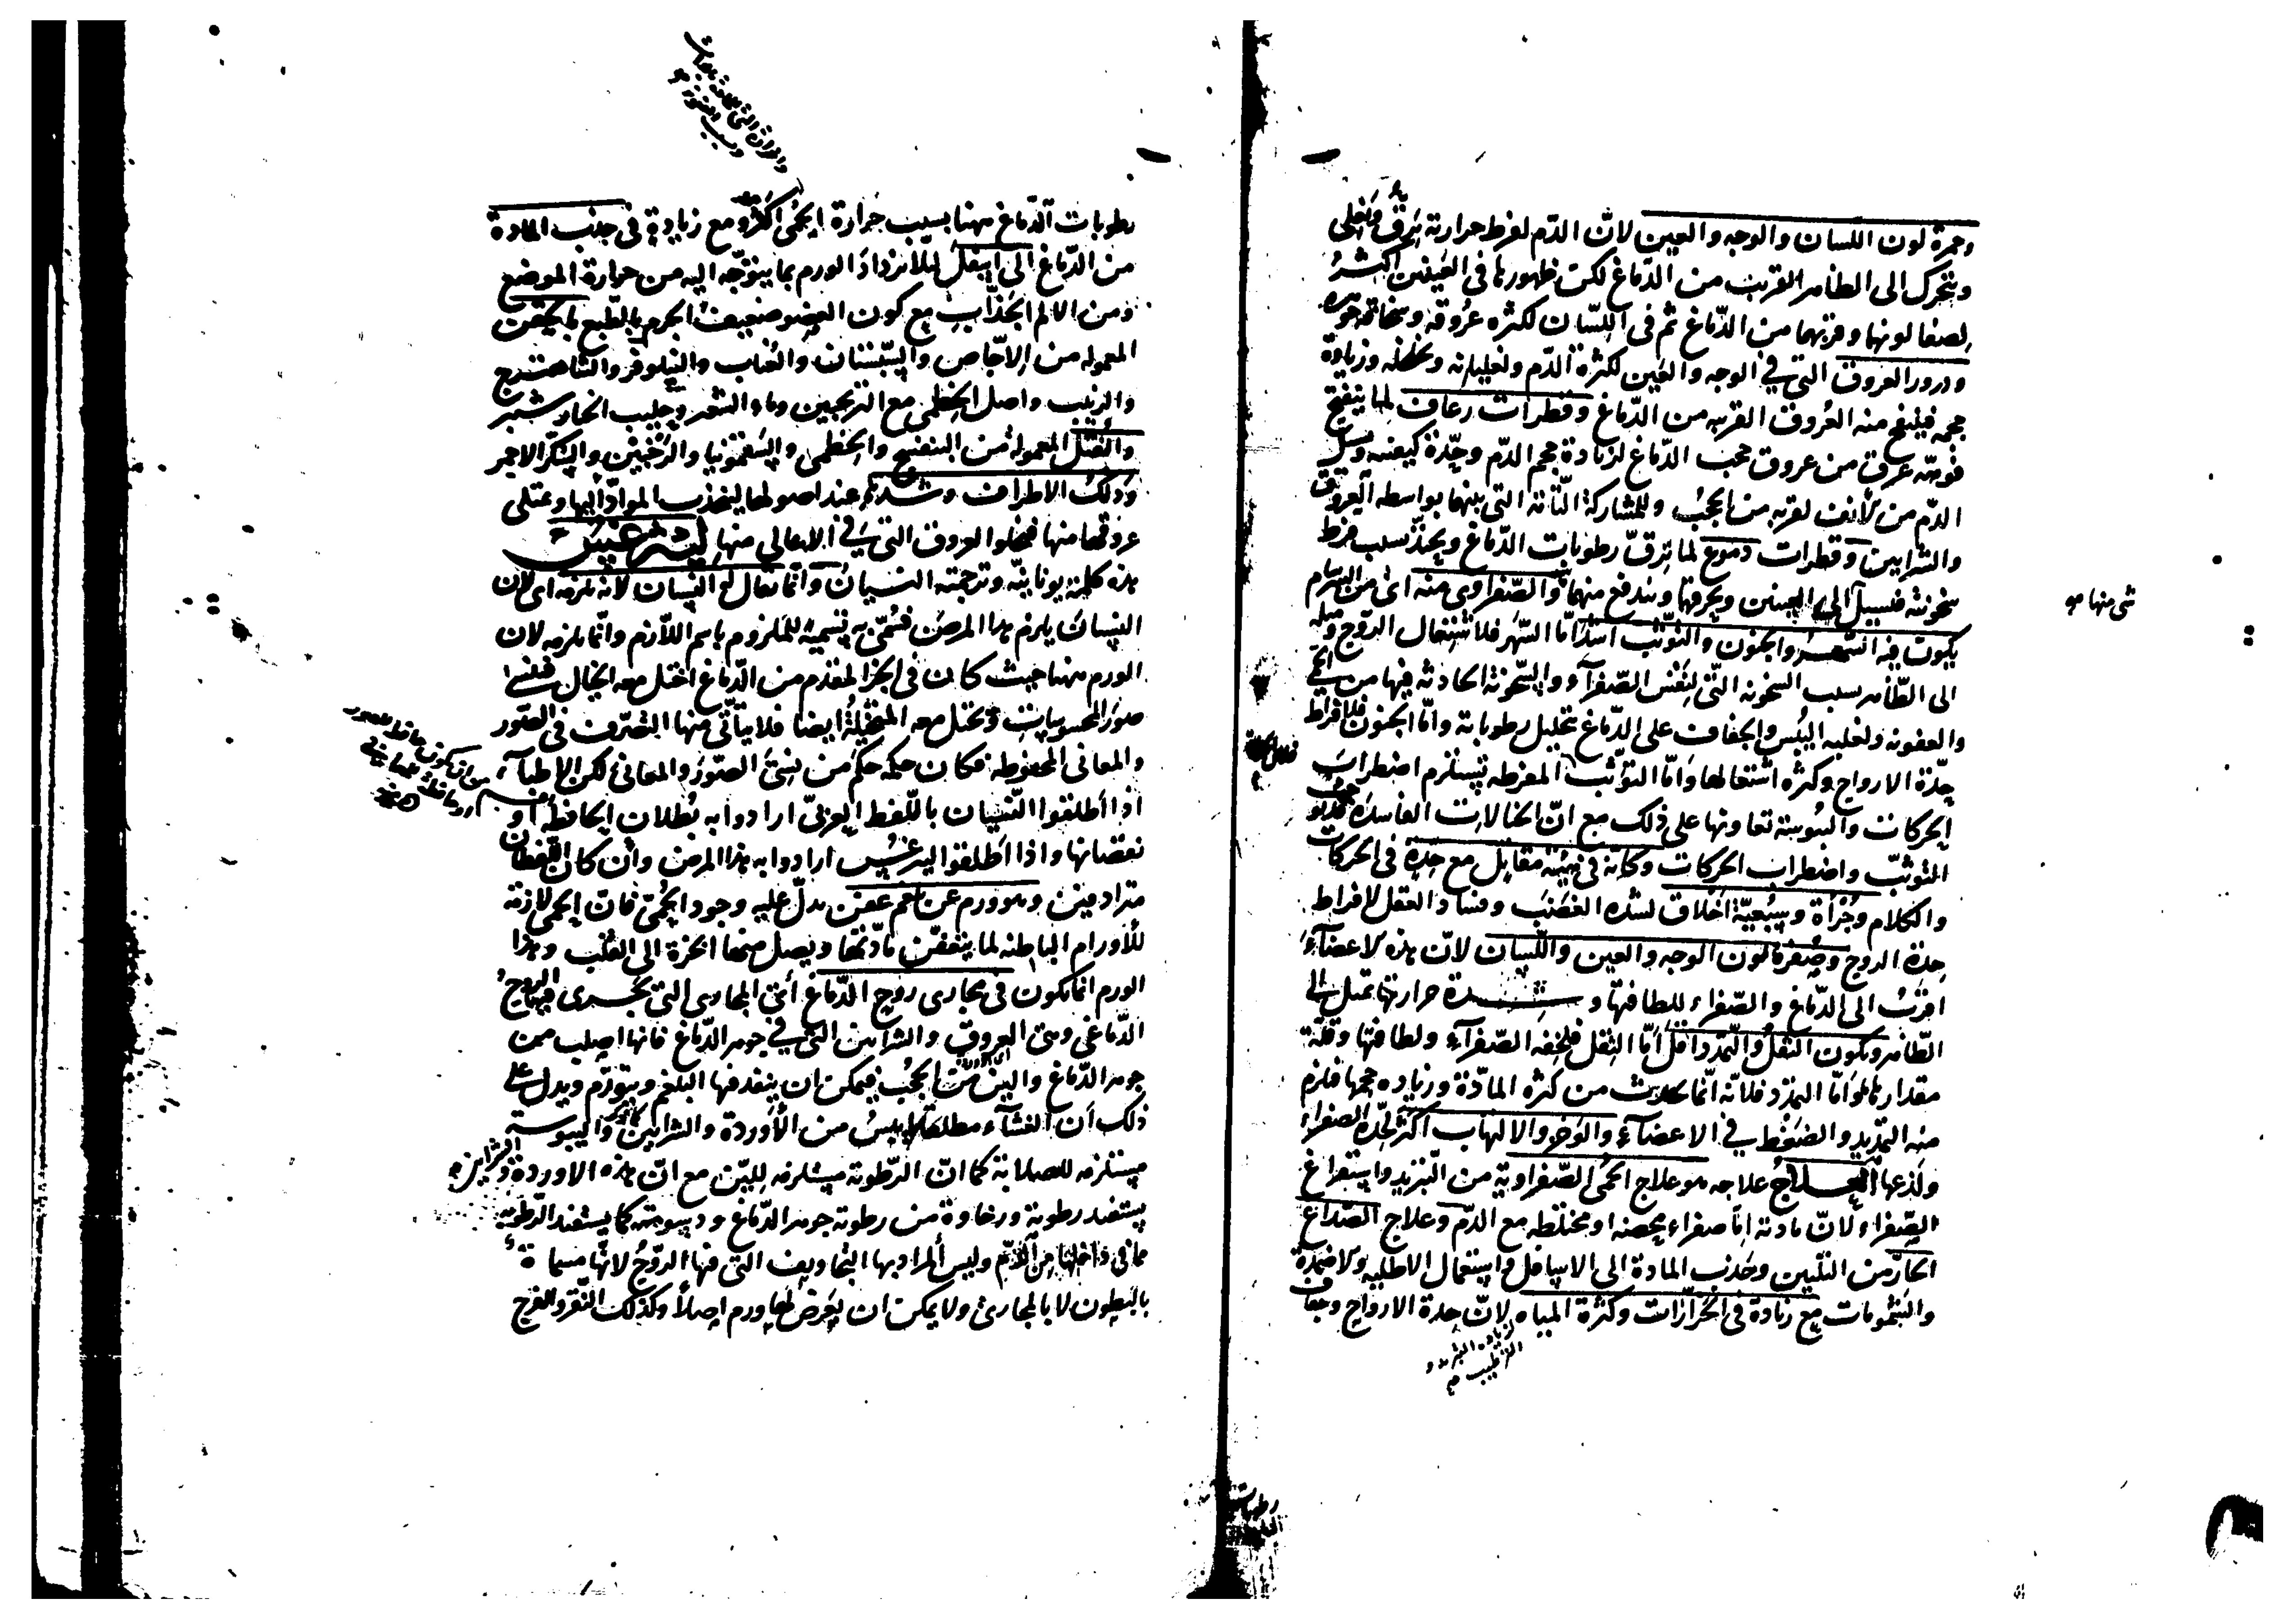 وحمرة لون اللسان والوجه والعين لانّ الدّم لفرط حرارته يَرِقّ ويَغلى
ويتحرك الى الظاهر القريب من الدّماغ لكن ظهورها فى العينين اكثرُ
لصفا لونها وقربهما من الدّماغ ثم فى اللّسان لكثره عُروقه وسخافة جوهره
ودرور العروق التى فى الوجه والعين لكثرة الدّم ولغليانه وتخلخله وزيادة
حجمه فينتفخ منه العُروق القريبه من الدّماغ وقطرات رعاف لما ينفتح
فوهة عرق من عروق حجب الدّماغ لزيادة حجم الدّم وحِدّة كيفيته ويسيل
الدّم من الأنف لقربه من الحجب وللمشاركة التّامّة التى بينهما بواسطه العروق
والشرايين وقطرات دموع لما ترقّ رطوبات الدّماغ وبحدّ بسبب فرط
سخونته فيسيل الى العينين ويحرقها ويندفع منهما والصّفراوى منه اى من السرسام
يكون فيه السّهر والجنون والتوثّب اشدّ امّا السّهر فلاشتعال الرّوح وميله
الى الظّاهر بسبب السخونه التى لنفس الصّفرآء والسّخونة الحادثه فيها من الحمى
والعفونه ولغلبه اليُبس والجفاف على الدّماغ بتحليل رطوباته وامّا الجنون فلافراط
حِدّة الارواح وكثره اشتعالها وامّا التوثّب المفرط فيستلزم اضطراب
الحركات واليُبوسة تعاونها على ذلك مع انّ الخيالات الفاسده
التوثّب واضطراب الحركات وكانّه فى هيئة مقاتل مع حِدة فى الحركات
والكلام وجُرْأة وسَبُعيّة اخلاق لشده الغضب وفساد العقل لافراط
حِدة الروح وصُفرة لون الوجه والعين واللّسان لانّ هذه الاعضاءَ
اقربُ الى الدّماغ والصّفراء للطافتها وشدة حرارتها تميل الى
الظّاهر ويكون الثقل والتمدّد اقلّ امّا الثقل فلخفّه الصّفرآء ولطافتها وقلّة
مقدارها وامّا التمدّد فلانّه انّما يحدث من كثره المادّة وزياده حجمها فيلزم
منه التمديد والضغط فى الاعضآء والوخز والالتهاب اكثر لحِدّة الصفراء
ولذعها العلاج علاجه هو علاج الحمّى الصّفراوية من التبريد واستفراغ
الصّفراء لانّ مادته امّا صفراء محضه او مختلطه مع الدّم وعلاج الصّداع
الحارّ من التليين وجذب المادة الى الاسافل واستعمال الاطليه والاضمدة
والشمومات مع زيادة فى المياه لانّ حِدة الارواح وجفاف
شى منها
رطوبات الدّماغ
رطوبات الدّماغ ههنا بسبب حرارة الحمّى اكثر ومع زيادةٍ فى جذب المادة
من الدّماغ الى اسفل لئلا يزداد الورم بما يتوجّه اليه من حرارة الموضع
ومن الالم الجذّاب مع كون العضو ضعيف الجرم بالطّبع بالحقن
المعموله من الاجّاص والسّبستان والعناب والنيلوفر والشاهترج
والزبيب واصل الخطمى مع الترنجبين وماء الشعير وحليب الخيارشنبر
والفُتُل المعمولة من البنفسج والخطمى والسّقمونيا والترنجبين والسكّر الاحمر
ودلك الاطراف وشدّها عند اصولها لينجذب الموادّ اليها ويمتلى
عروقها منها فيخلوا العروق التى فى الاعالى منها ليثرغيس
هذه كلمة يونانيّه وترجمته النسيان وانّما يقال له النسيان لانه يلزمه اى لان
النسيان يلزم هذا المرض فسُمّى به تسمية للملزوم باسم اللّازم وانّما يلزمه لان
الورم ههنا حيث كان فى الجزء المقدم من الدّماغ اختل معه الخيال فينسى
صور المحسوسات ويختل معه المتخيّلة ايضا فلا يتأتّى منها التصرّف فى الصّور
والمعانى المحفوظه فكان حكمه حكم من نسى الصّور والمعانى لكن الاطبآء
اذا اطلقوا النّسيان باللّفظ العربىّ ارادوا به بُطلان الحافظة او
نقصانها واذا اطلقوا ليثرغيس ارادوا به هذا المرض وان كان اللفظان
مترادفين وهو ورم عن بلغم عفن يدلّ عليه وجود الحُمّى فانّ الحمى لازمة
للأورام الباطنه لما يتعفّن مادّتها ويصل منها ابخرة الى القلب وهذا
الورم انما يكون فى مجارى روح الدّماغ أعنى المجارى التى تجرى فيها الروحُ
الدّماغى وهى العروق والشرايين التى فى جوهر الدّماغ فانها اصلب من
جوهر الدّماغ والين من الحجب فيمكن ان ينفذ فيها البلغم ويتورّم ويدل على
ذلك ان الغشآء مطلقا ايبسُ من الأوردة والشرايين واليبوسة
مستلزمه للصلابة كما انّ الرّطوبة مستلزمه للّين مع انّ هذه الاوردة والشرايين
يستفيد رطوبة ورخاوة من رطوبة جوهر الدّماغ ودسومته كما يستفيد الرّطوبة
ممّا فى داخلها من الدّم وليس المراد بها التجاويف التى فيها الرّوحُ لانّها مسماة
بالبطون لا بالمجارى ولا يمكن ان يعرض لها ورم اصلاً وكذلك